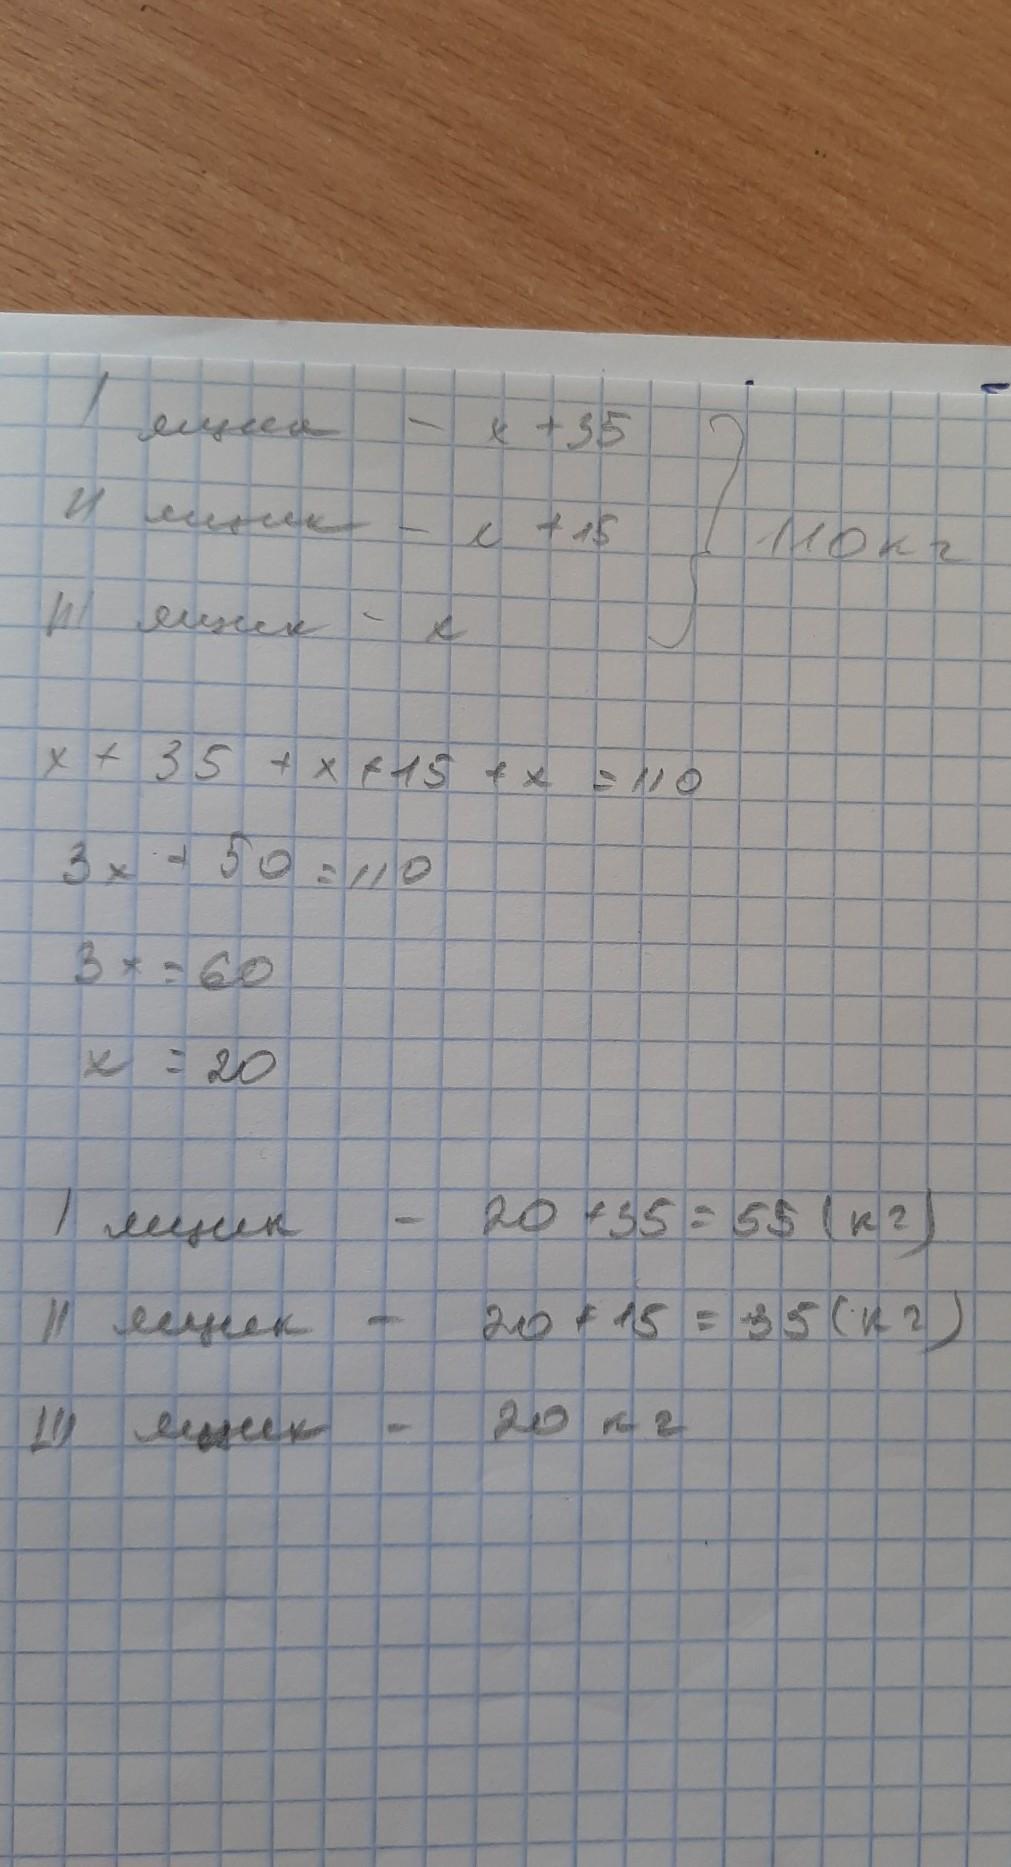 I ящик - x + 35
II ящик - x + 15 } 110 кг
III ящик - x
x + 35 + x + 15 + x = 110
3x + 50 = 110
3x = 60
x = 20
I ящик - 20 + 35 = 55 (кг)
II ящик - 20 + 15 = 35 (кг)
III ящик - 20 кг